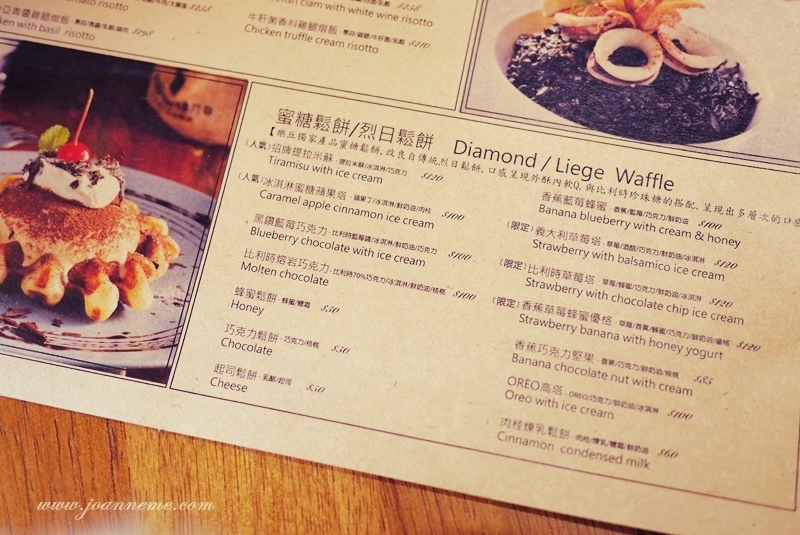 $258
clam with white wine risotto
亞青醬雞腿燉飯
$198
with basil risotto
牛肝菌香料雞腿燉飯
$210
Chicken truffle cream risotto
蜜糖鬆餅/烈日鬆餅 Diamond / Liege Waffle
(人氣) 招牌提拉米蘇 · 提拉米蘇/冰淇淋/巧克力 $120
Tiramisu with ice cream
(人氣) 冰淇淋蜜糖蘋果塔 · 蘋果丁/冰淇淋/鮮奶油/肉桂 $100
Caramel apple cinnamon ice cream
黑鑽藍莓巧克力 · 比利時藍莓醬/冰淇淋/鮮奶油/巧克力 $100
Blueberry chocolate with ice cream
比利時熔岩巧克力 · 比利時70%巧克力/冰淇淋/鮮奶油/核桃 $100
Molten chocolate
蜂蜜鬆餅 · 蜂蜜/糖霜 $50
Honey
巧克力鬆餅 · 巧克力/核桃 $50
Chocolate
起司鬆餅 · 乳酪/起司 $50
Cheese
香蕉藍莓蜂蜜 · 香蕉/藍莓/巧克力/鮮奶油 $100
Banana blueberry with cream & honey
(限定) 義大利草莓塔 · 草莓/酒醋/巧克力/鮮奶油/冰淇淋 $120
Strawberry with balsamico ice cream
(限定) 比利時草莓塔 · 草莓/蜂蜜/巧克力/鮮奶油/冰淇淋 $120
Strawberry with chocolate chip ice cream
(限定) 香蕉草莓蜂蜜優格 · 草莓/香蕉/蜂蜜/巧克力/鮮奶油/優格 $120
Strawberry banana with honey yogurt
香蕉巧克力堅果 · 香蕉/巧克力/鮮奶油/核桃 $85
Banana chocolate nut with cream
OREO高塔 · OREO/巧克力/鮮奶油/冰淇淋 $100
Oreo with ice cream
肉桂煉乳鬆餅 · 肉桂/煉乳/糖霜/鮮奶油 $60
Cinnamon condensed milk
www.joanneme.com